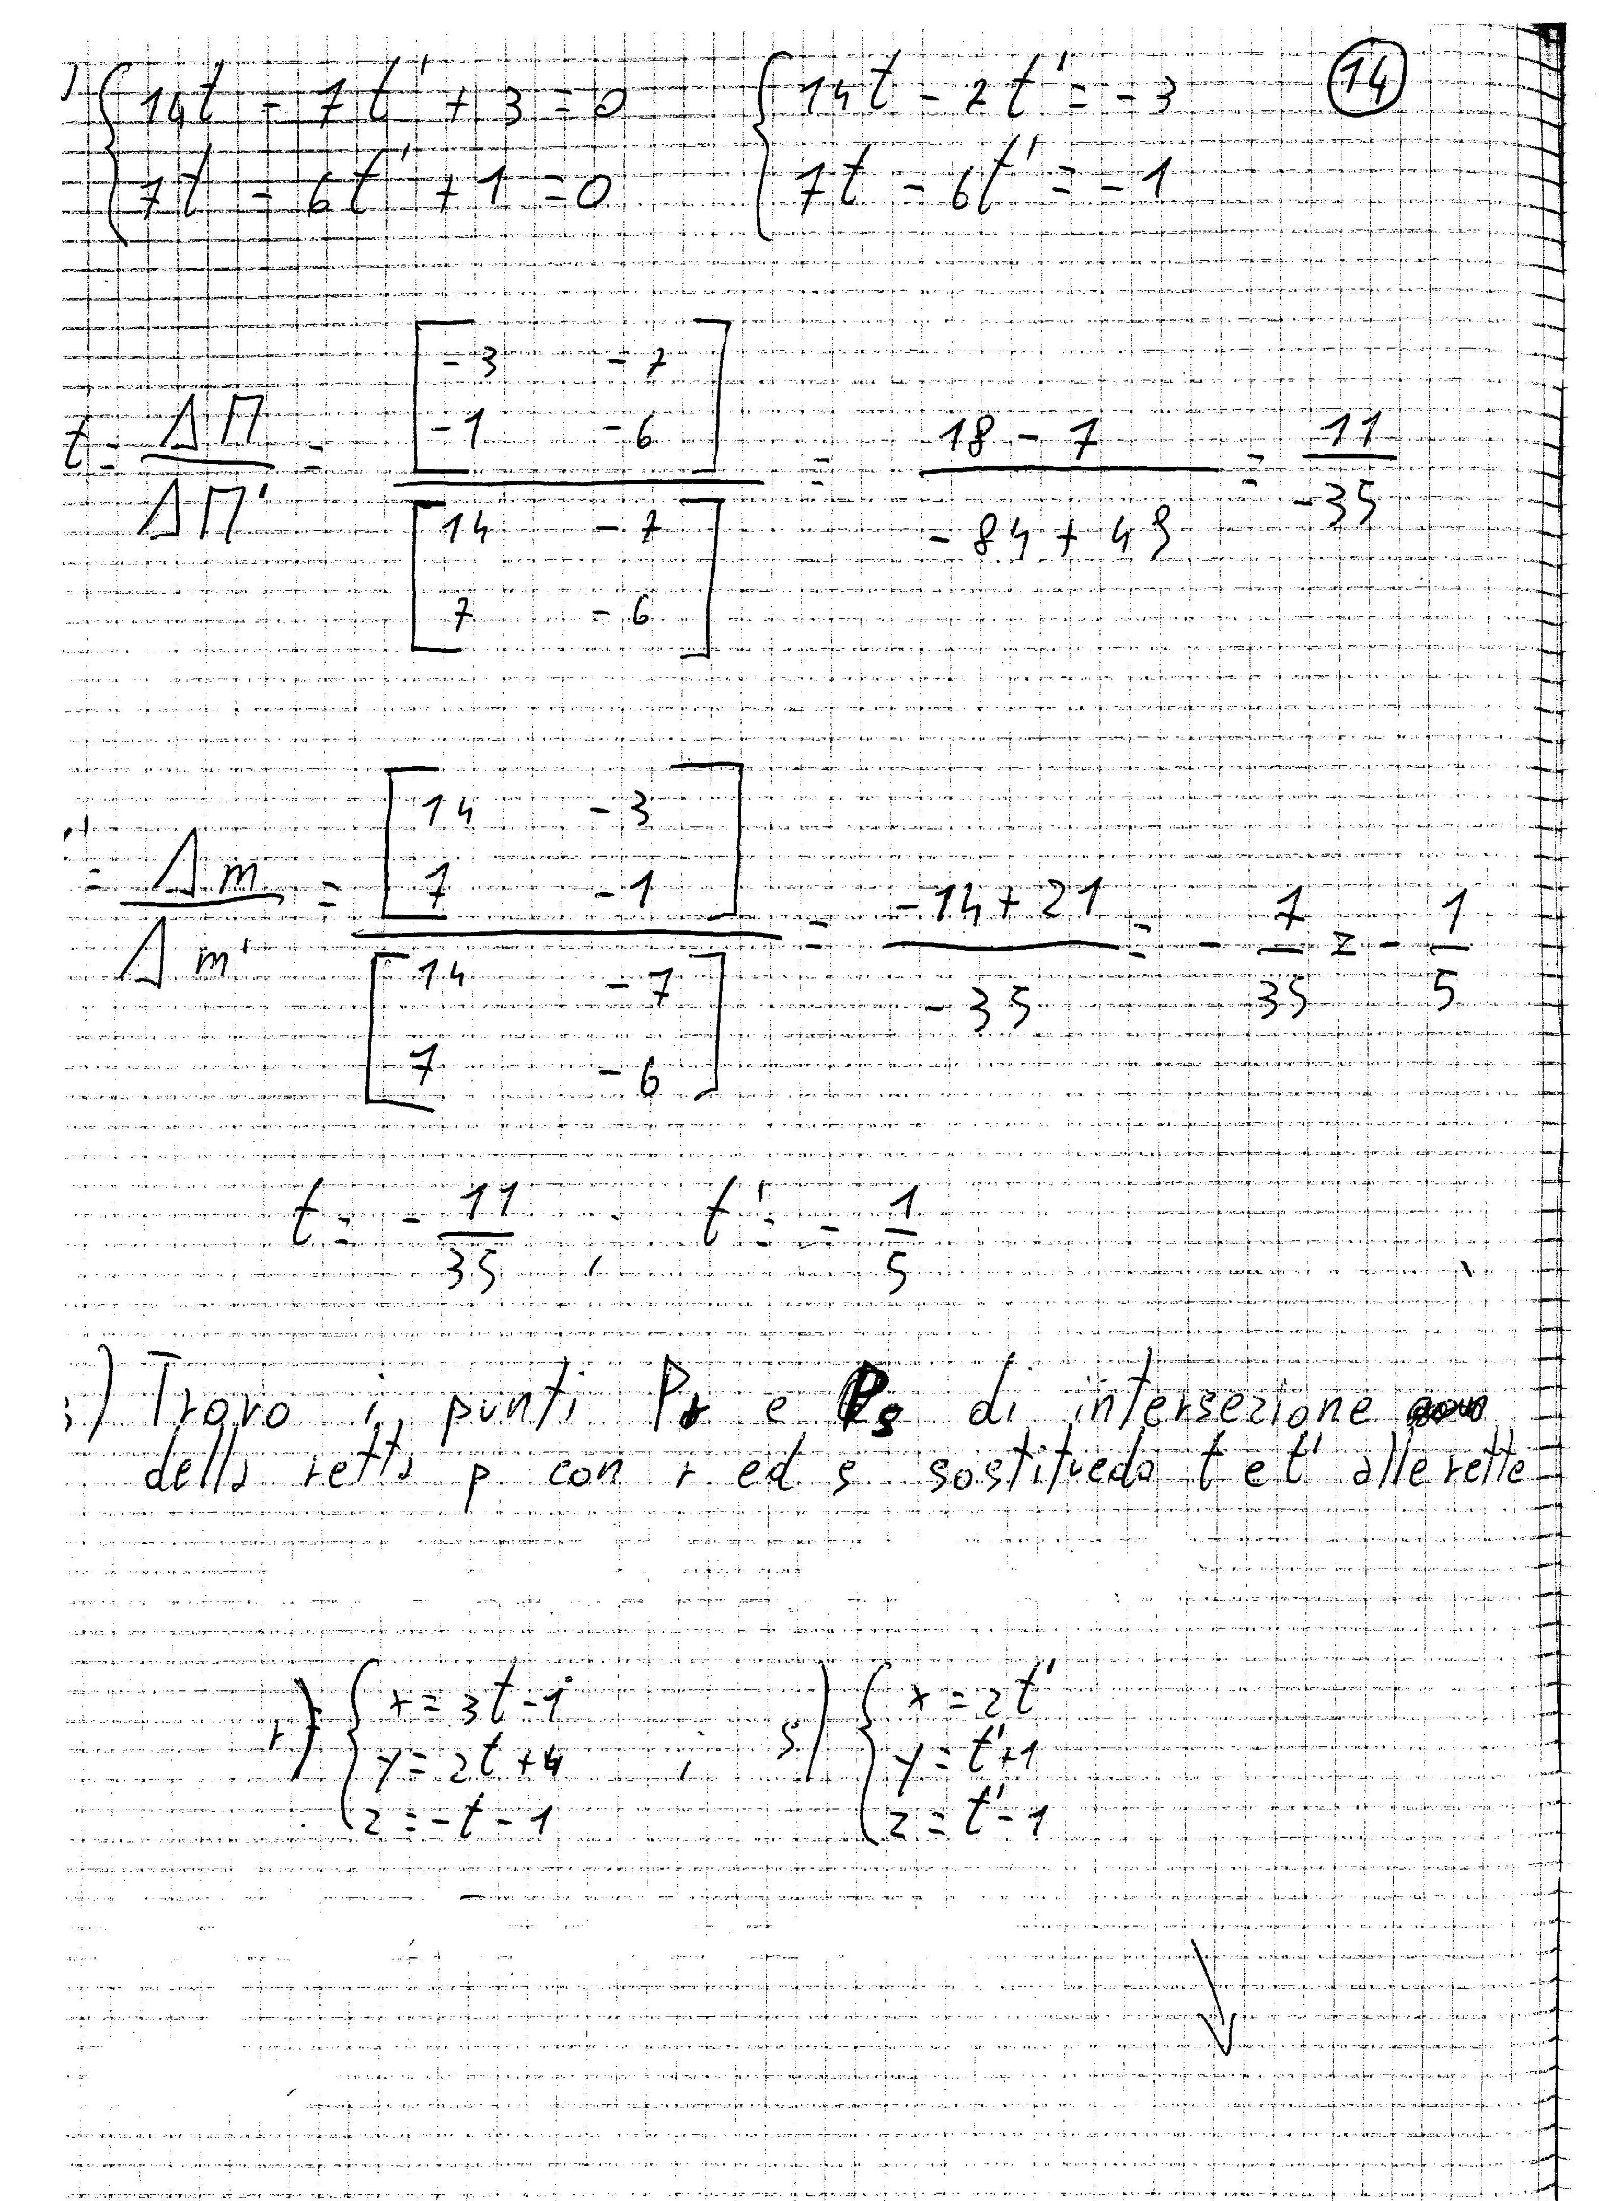 14
) { 14t - 7t' + 3 = 0 { 14t - 7t' = -3
7t - 6t' + 1 = 0 7t - 6t' = -1
t = ΔΠ / ΔΠ' = [ -3 -7 ; -1 -6 ] / [ 14 -7 ; 7 -6 ] = 18 - 7 / -84 + 49 = 11 / -35
= Δm / Δm' = [ 14 -3 ; 7 -1 ] / [ 14 -7 ; 7 -6 ] = -14 + 21 / -35 = - 7 / 35 = - 1 / 5
t = - 11 / 35 , t' = - 1 / 5
) Trovo i punti Pr e Ps di intersezione
della retta p con r ed s sostituedo t e t' alle rette
r) { x = 3t - 1 ; s) { x = 2t'
y = 2t + 4 y = t' + 1
z = -t - 1 z = t' - 1